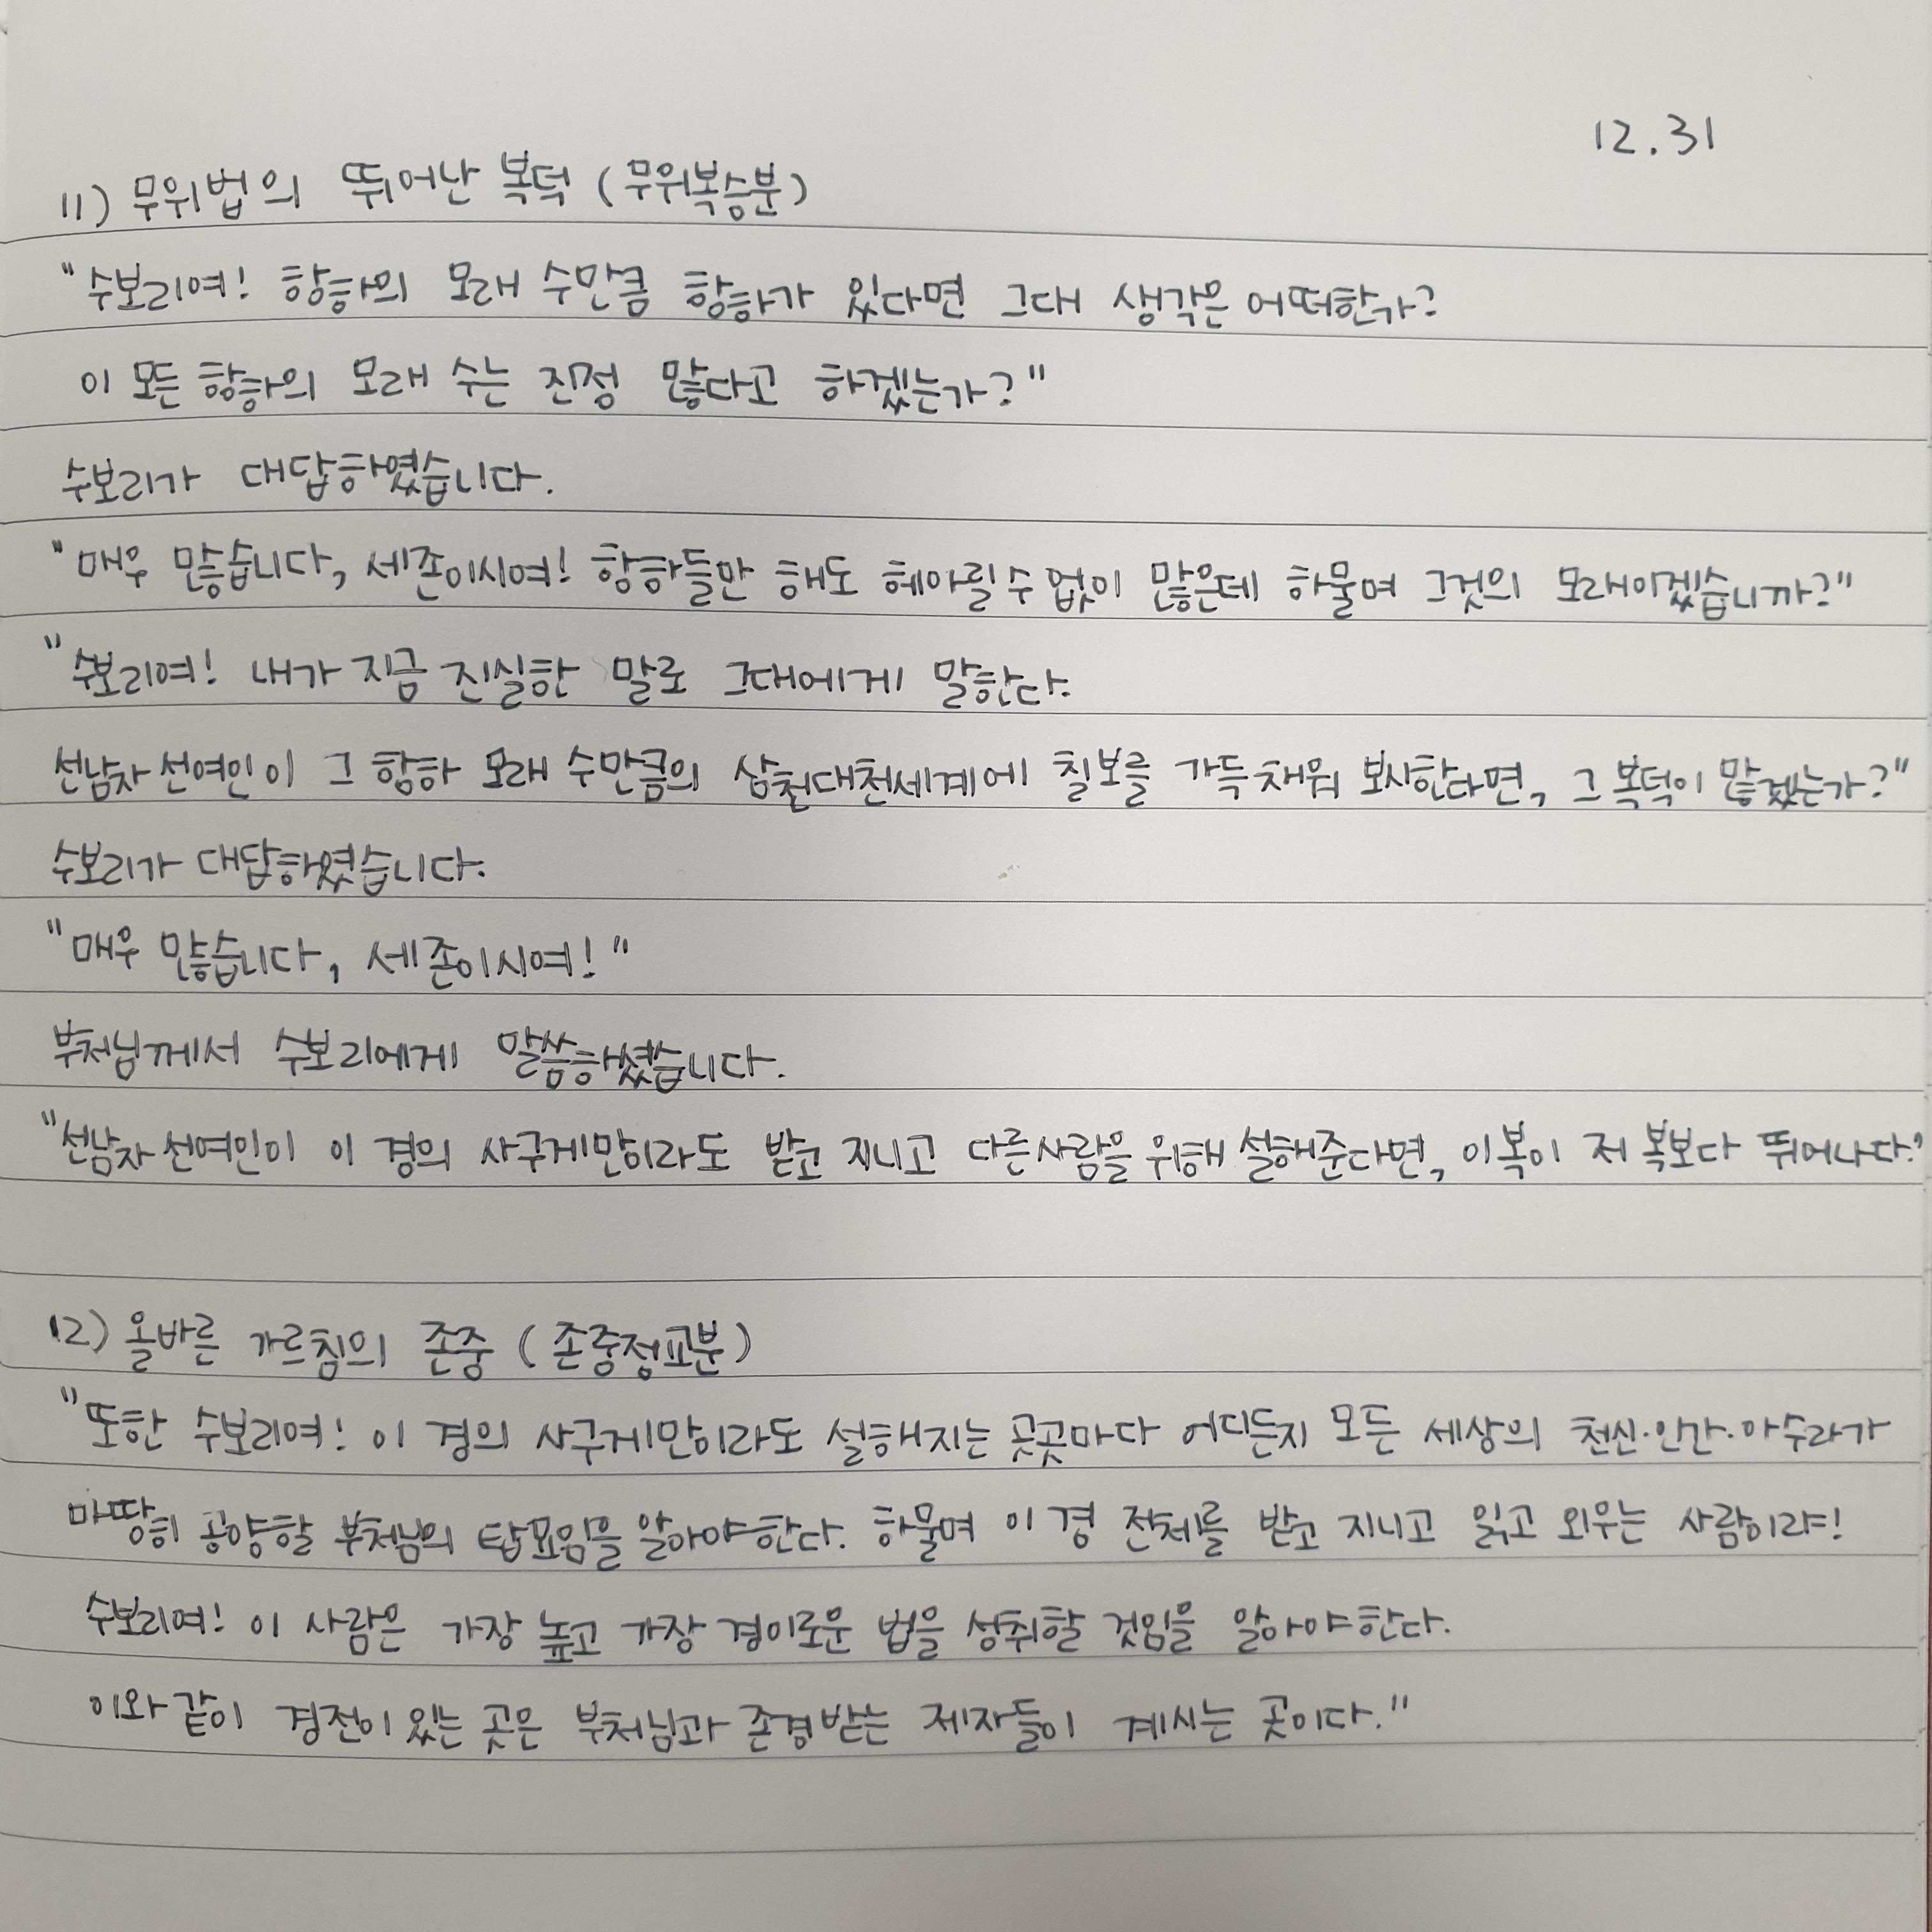 12.31
11) 무위법의 뛰어난 복덕 (무위복승분)
"수보리여! 항하의 모래 수만큼 항하가 있다면 그대 생각은 어떠한가?
이 모든 항하의 모래 수는 진정 많다고 하겠는가?"
수보리가 대답하였습니다.
"매우 많습니다, 세존이시여! 항하들만 해도 헤아릴 수 없이 많은데 하물며 그것의 모래이겠습니까?"
"수보리여! 내가 지금 진실한 말로 그대에게 말한다.
선남자 선여인이 그 항하 모래 수만큼의 삼천대천세계에 칠보를 가득 채워 보시한다면, 그 복덕이 많겠는가?"
수보리가 대답하였습니다.
"매우 많습니다, 세존이시여!"
부처님께서 수보리에게 말씀하셨습니다.
"선남자 선여인이 이 경의 사구게만이라도 받고 지니고 다른 사람을 위해 설해준다면, 이 복이 저 복보다 뛰어나다."
12) 올바른 가르침의 존중 (존중정교분)
"또한 수보리여! 이 경의 사구게만이라도 설해지는 곳곳마다 어디든지 모든 세상의 천신·인간·아수라가
마땅히 공양할 부처님의 탑묘임을 알아야 한다. 하물며 이 경 전체를 받고 지니고 읽고 외우는 사람이랴!
수보리여! 이 사람은 가장 높고 가장 경이로운 법을 성취할 것임을 알아야 한다.
이와 같이 경전이 있는 곳은 부처님과 존경받는 제자들이 계시는 곳이다."